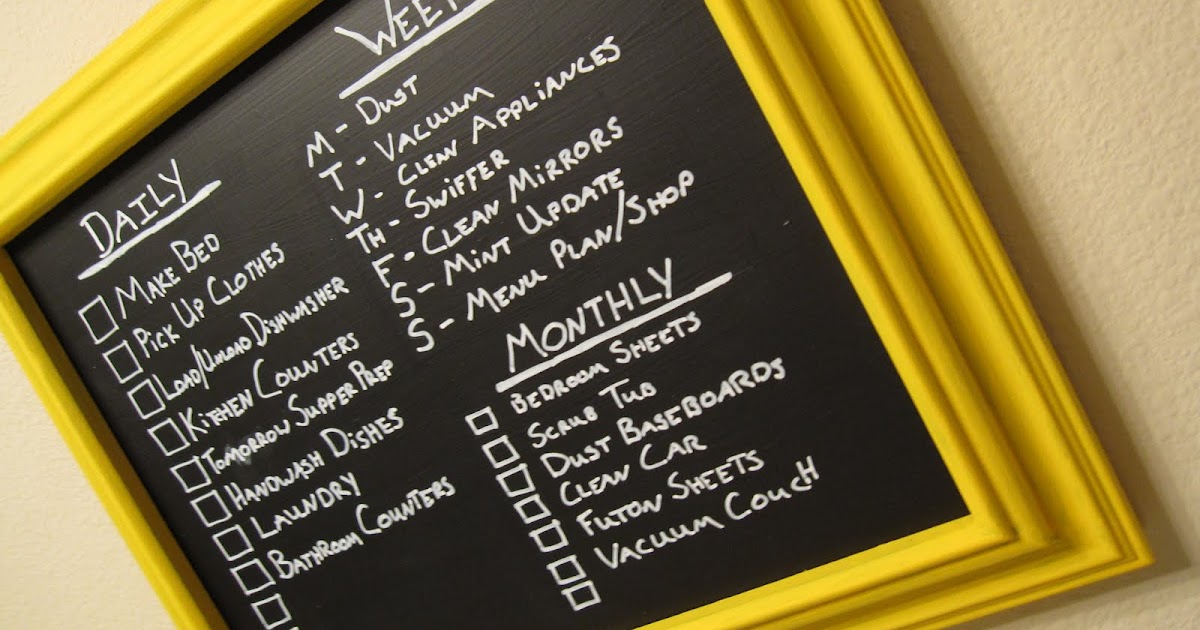 DAILY
MAKE BED
PICK UP CLOTHES
LOAD/UNLOAD DISHWASHER
KITCHEN COUNTERS
TOMORROW SUPPER PREP
HANDWASH DISHES
LAUNDRY
BATHROOM COUNTERS
M - DUST
T - VACUUM
W - CLEAN APPLIANCES
TH - SWIFFER
F - CLEAN MIRRORS
S - MINT UPDATE
S - MENU PLAN/SHOP
MONTHLY
BEDROOM SHEETS
SCRUB TUB
DUST BASEBOARDS
CLEAN CAR
FUTON SHEETS
VACUUM COUCH